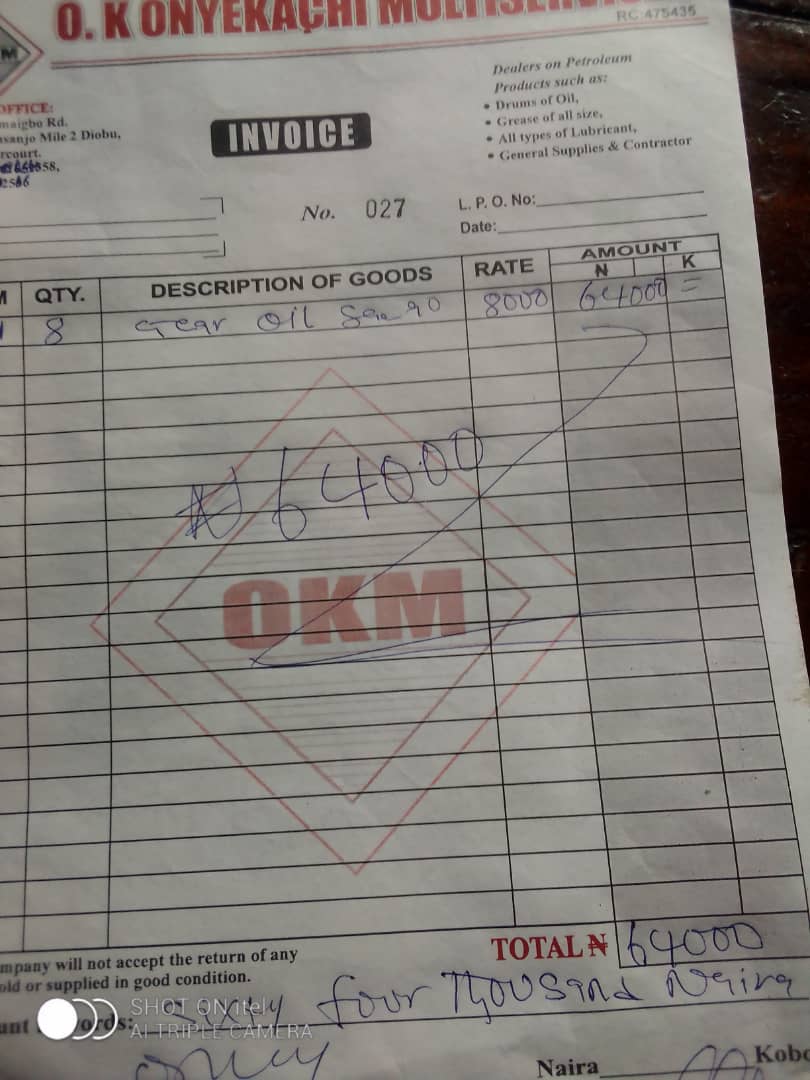 O. K ONYEKACHI MULTISERVIC
RC 475435
M
OFFICE:
maigbo Rd.
sanjo Mile 2 Diobu,
rcourt.
58,
Dealers on Petroleum
Products such as:
• Drums of Oil,
• Grease of all size,
• All types of Lubricant,
• General Supplies & Contractor
INVOICE
No. 027
L. P. O. No:
Date:
M QTY. DESCRIPTION OF GOODS RATE AMOUNT
N K
8 Gear Oil Sae 90 8000 64000 =
₦ 64000
OKM
TOTAL ₦ 64000
mpany will not accept the return of any
old or supplied in good condition.
unt ords: Sixty four Thousand Naira
only
Naira Kobo
SHOT ON itel
AI TRIPLE CAMERA